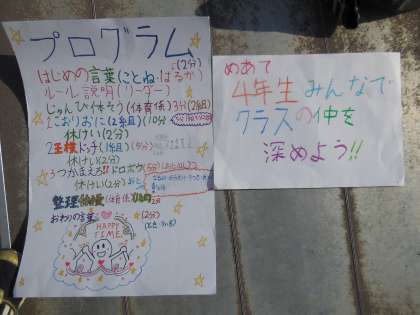 プログラム
はじめの言葉(ことね・はるか)(2分)
ルール説明(リーダー)
じゅんび体そう(体育係)3分(2組)
1こおりおに(2組)(10分)
休けい(2分)
2王様ドッチ(1組)(15分)
休けい(2分)
3つかまえろ!!ドロボウ(5分)
休けい(2分)
整理体操(体育係)
おわりの言葉(2分)
HAPPY
TIME
めあて
4年生みんなで
クラスの仲を
深めよう!!